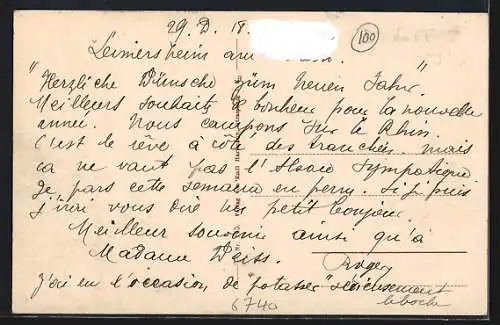 29. D. 18.
100
Leimersheim am
"Herzliche Wünsche züm neuen Jahr"
Meilleurs souhaits de bonheur pour la nouvelle
année. Nous campons sur le Rhin.
C'est de rêve à côté des tranchées. mais
ça ne vaut pas l'Alsace sympatique.
Je pars cette semaine en perm. Si je puis
j'irai vous dire un petit bonjour.
Meilleur souvenir ainsi qu'à
Madame Weiss.
Roger
J'ai eu l'occasion de potasser sérieusement
le boche
6740